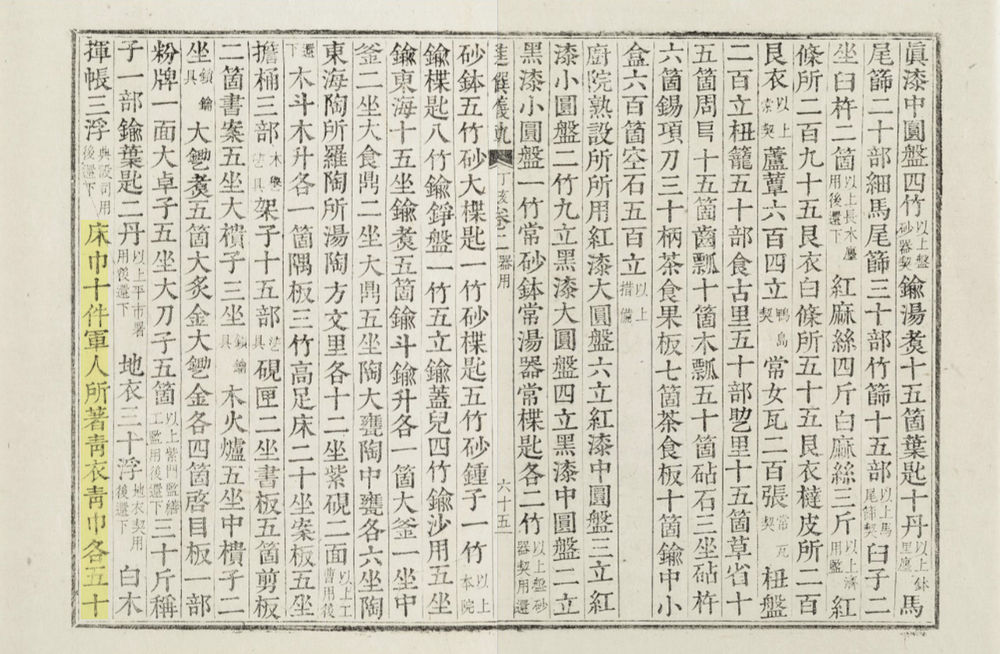 眞漆中圓盤四竹以上盤砂器契鍮湯煮十五箇葉匙十丹以上鉢里廛馬
尾篩二十部細馬尾篩三十部竹篩十五部以上馬尾篩契臼子二
坐臼杵二箇以上長木廛用後還下紅麻絲四斤白麻絲三斤以上濟用監紅
條所二百九十五艮衣白條所五十五艮衣橽皮所二百
艮衣以上常契蘆蕈六百四立鴨島契常女瓦二百張常瓦契杻盤
二百立杻籠五十部食古里五十部乫里十五箇草省十
五箇周㠯十五箇齒瓢十箇木瓢五十箇砧石三坐砧杵
六箇錫項刀三十柄茶食果板七箇茶食板十箇鍮中小
盒六百箇空石五百立以上措備
廚院熟設所所用紅漆大圓盤六立紅漆中圓盤三立紅
漆小圓盤二竹九立黑漆大圓盤四立黑漆中圓盤二立
黑漆小圓盤一竹常砂鉢常湯器常楪匙各二竹以上盤砂器契用還
進饌儀軌 丁亥 卷二 器用 六十五
砂鉢五竹砂大楪匙一竹砂楪匙五竹砂鍾子一竹以上本院
鍮楪匙八竹鍮錚盤一竹五立鍮蓋兒四竹鍮沙用五坐
鍮東海十五坐鍮煮五箇鍮斗鍮升各一箇大釜一坐中
釜二坐大食鼎二坐大鼎五坐陶大甕陶中甕各六坐陶
東海陶所羅陶所湯陶方文里各十二坐紫硯二面以上工曹用後
還下木斗木升各一箇隅板三竹高足床二十坐案板五坐
擔桶三部木擧乼具架子十五部乼具硯匣二坐書板五箇剪板
二箇書案五坐大樻子三坐鎖鑰木火爐五坐中樻子二
坐鎖鑰具大鍬煮五箇大炙金大鍬金各四箇啓目板一部
粉牌一面大卓子五坐大刀子五箇以上紫門監繕工監用後還下三十斤稱
子一部鍮葉匙二丹以上平市署用後還下地衣三十浮地衣契用後還下白木
揮帳三浮典設司用後還下床巾十件軍人所著靑衣靑巾各五十